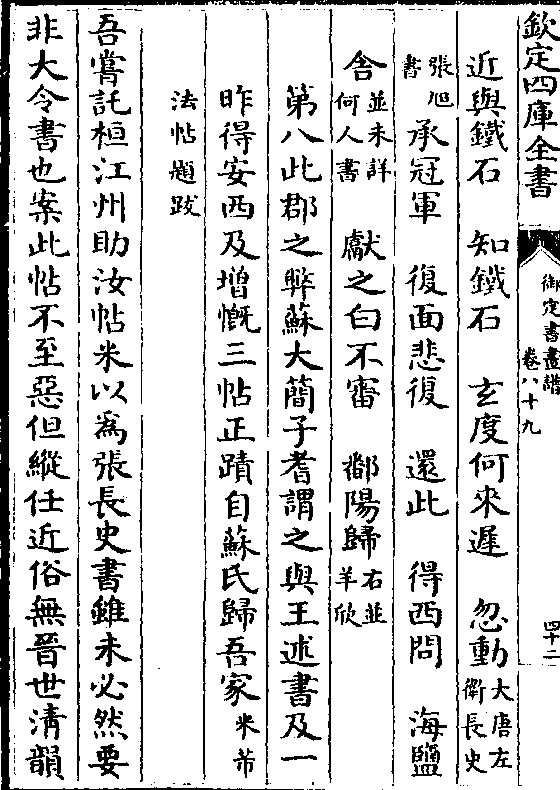 欽定四庫全書
御定書畫譜
卷八十九
四十二
近與鐵石　知鐵石　玄度何來遲　忽動大唐左衛長史
張旭書　承冠軍　復面悲復　還此　得西問　海鹽
舍並未詳何人書　獻之白不審　鄱陽歸右並羊欣
第八此郡之弊蘇大簡子耆謂之與王述書及一
昨得安西及增慨三帖正蹟自蘇氏歸吾家米芾
法帖題跋
吾嘗託桓江州助汝帖米以為張長史書雖未必然要
非大令書也案此帖不至惡但縱任近俗無晉世清韻